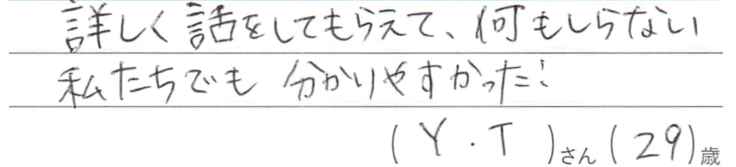 詳しく話をしてもらえて、何もしらない
私たちでも 分かりやすかった!
(Y.T)さん(29)歳